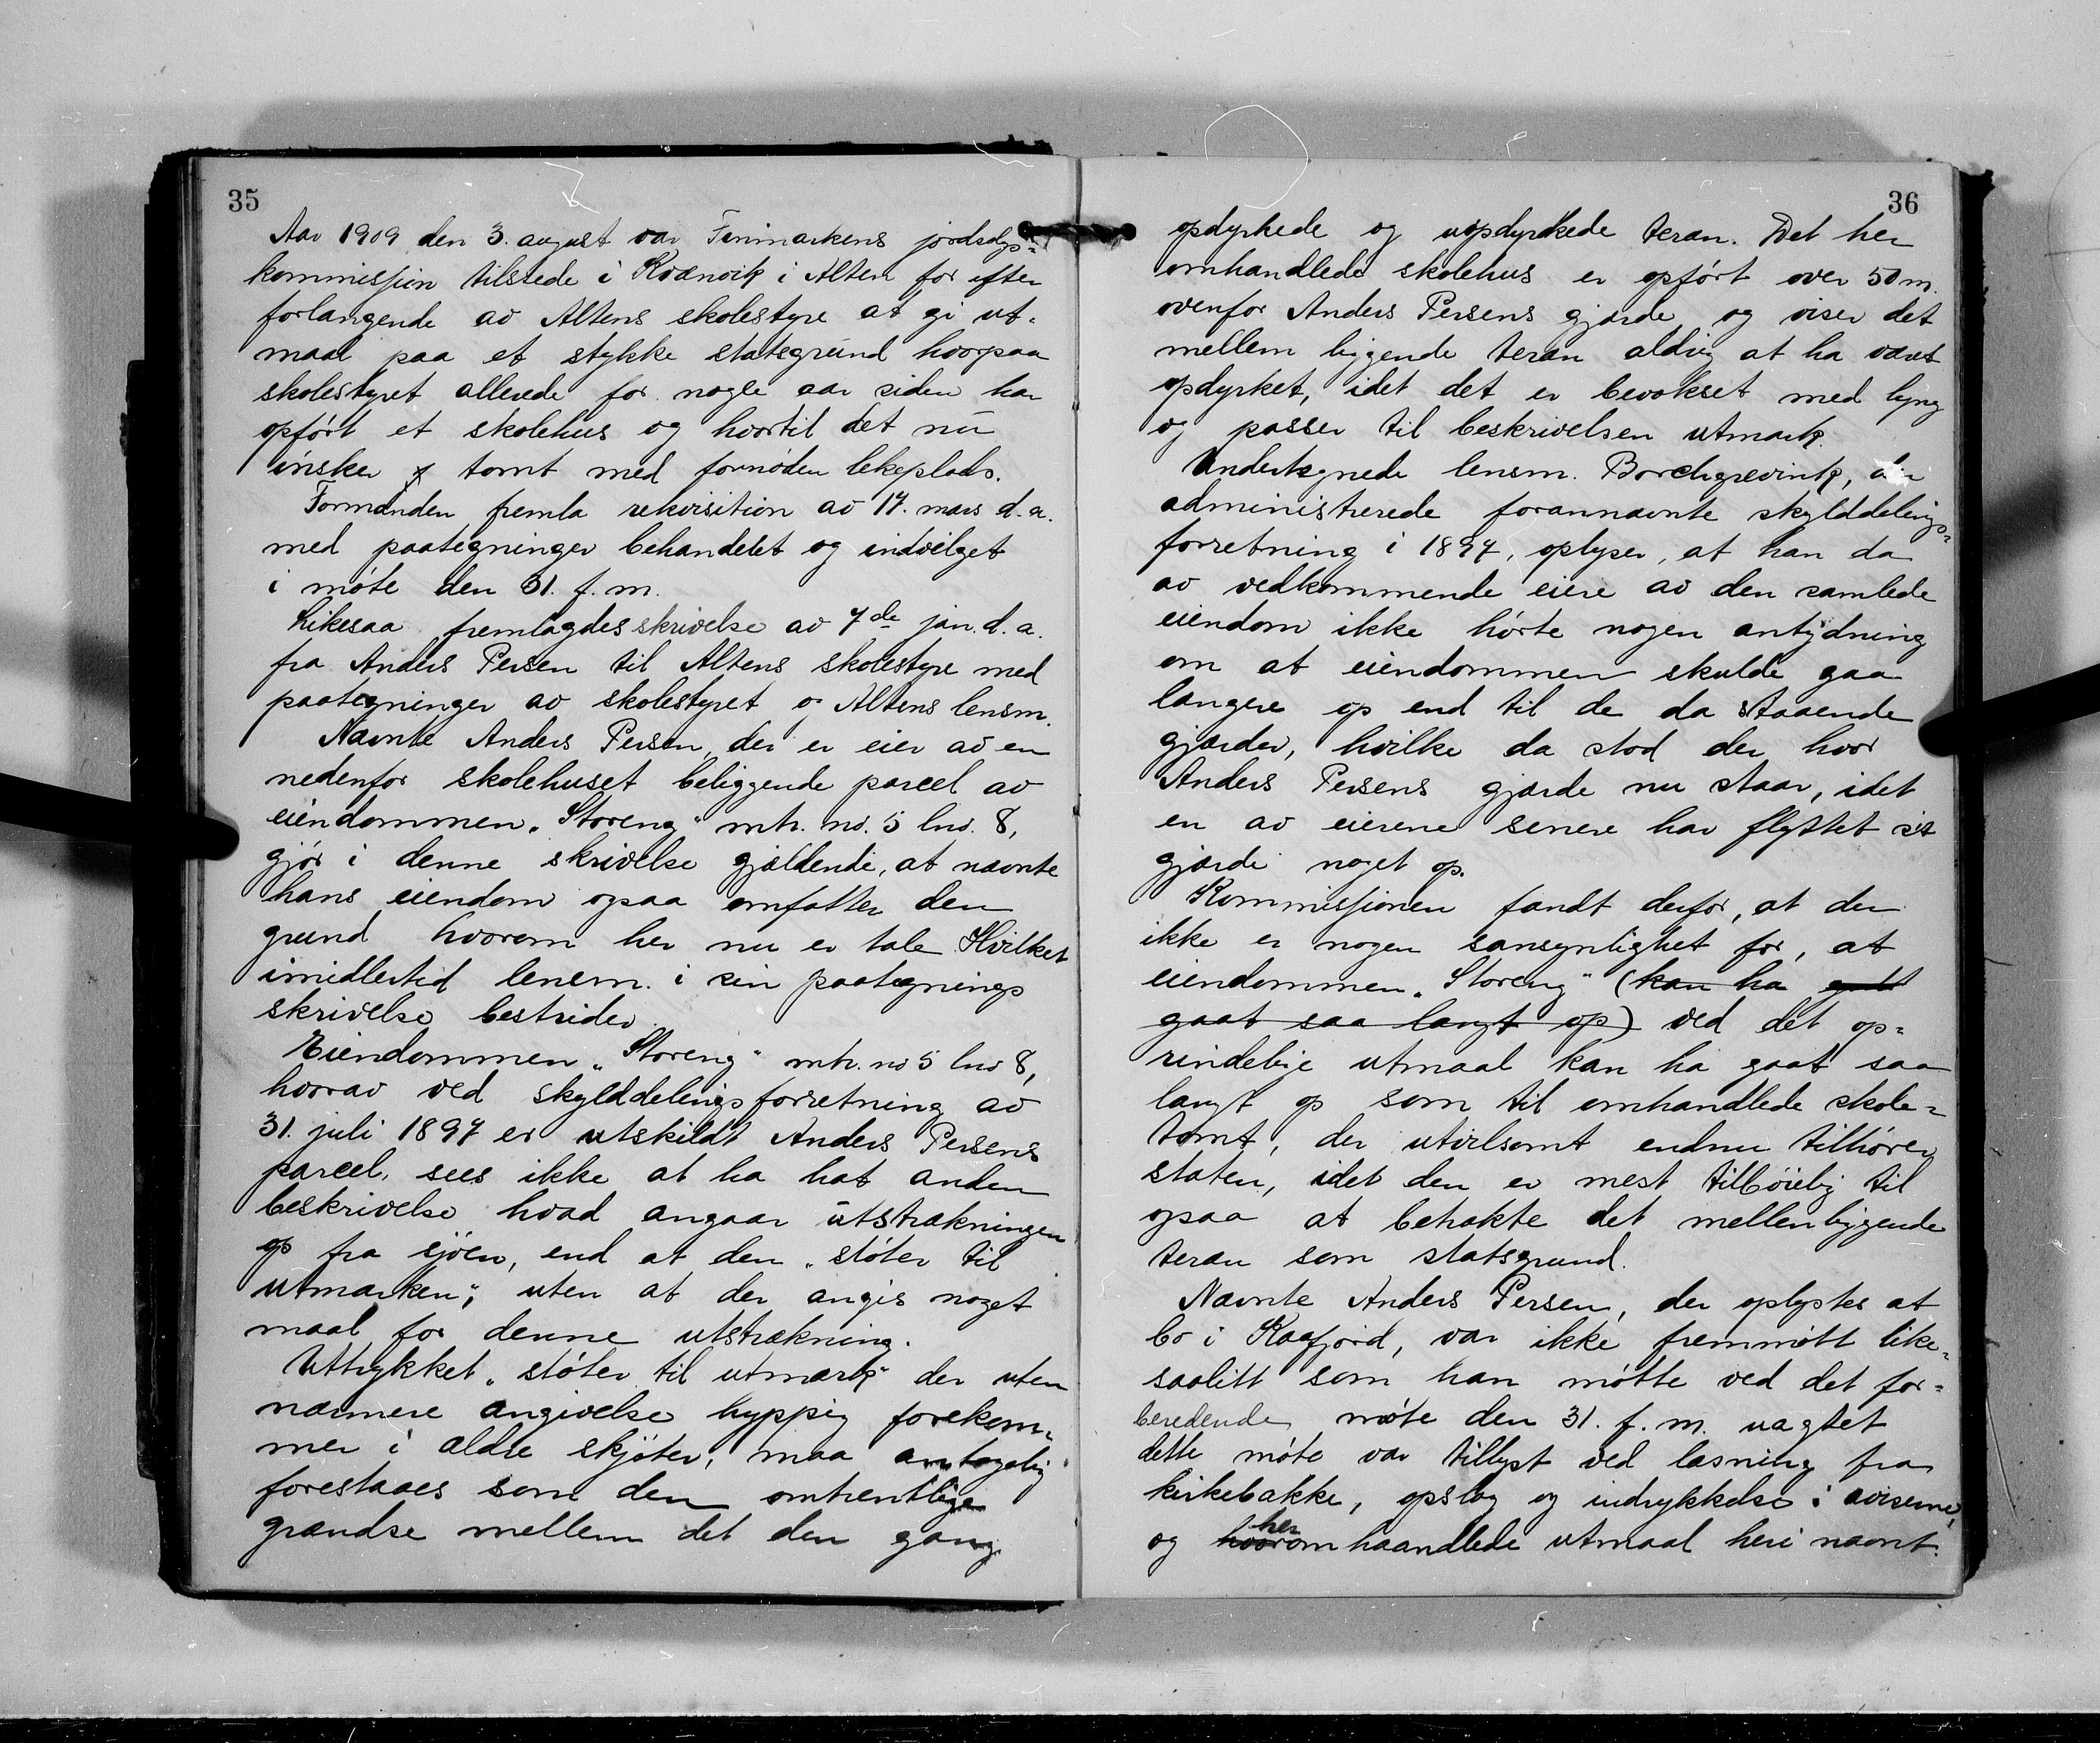 35
Aar 1909 den 3. august var Finmarkens jordsalgs-
kommissjon tilstede i Kvænvik i Alten for efter
forlangende av Altens skolestyre at gi ut-
maal paa et stykke statsgrund hvorpaa
skolestyret allerede for nogle aar siden har
opført et skolehus og hvortil det nu
ønsker tomt med fornøden lekeplads.
Formanden fremla rekvisition av 17. mars d.a.
med paategninger behandlet og indvilget
i møte den 31. f.m.
Likesaa fremlagdes skrivelse av 7de jan. d.a.
fra Anders Persen til Altens skolestyre med
paategninger av skolestyret og Altens lensm.
Nævnte Anders Persen, der er eier av en
nedenfor skolehuset beliggende parcel av
eiendommen „Storeng" mtr. no. 5 lno. 8,
gjør i denne skrivelse gjældende, at nævnte
hans eiendom ogsaa omfatter den
grund hvorom her nu er tale. Hvilket
imidlertid lensm. i sin paategnings
skrivelse bestrider.
Eiendommen „Storeng" mtr. no 5 lno 8,
hvorav ved skylddelingsforretning av
31. juli 1897 er utskildt Anders Persens
parcel, sees ikke at ha hat anden
beskrivelse hvad angaar utstrækningen
op fra sjøen, end at den „støter til
utmarken", uten at der angis noget
maal for denne utstrækning.
Uttrykket „støter til utmark" der uten
nærmere angivelse hyppig forekom-
mer i ældre skjøter, maa antagelig
forestaaes som den omtrentlige
grændse mellem det den gang
36
opdyrkede og uopdyrkede teræn. Det her
omhandlede skolehus er opført over 50 m.
ovenfor Anders Persens gjærde og viser det
mellem liggende teræn aldrig at ha været
opdyrket, idet det er bevokset med lyng
og passer til beskrivelsen utmark.
Undertegnede lensm. Borchgrevink, der
administrerede forannævnte skylddelings-
forretning i 1897, oplyser, at han da
av vedkommende eiere av den samlede
eiendom ikke hørte nogen antydning
om at eiendommen skulde gaa
længere op end til de da staaende
gjærder, hvilke da stod der hvor
Anders Persens gjærde nu staar, idet
en av eierene senere har flyttet sit
gjærde noget op.
Kommissjonen fandt derfor, at der
ikke er nogen sansynlighet for, at
eiendommen „Storeng" (kan ha
gaat saa langt op) ved det op-
rindelige utmaal kan ha gaat saa
langt op som til omhandlede skole-
tomt, der utvilsomt endnu tilhører
staten, idet den er mest tilbøielig til
ogsaa at betrakte det mellenliggende
teræn som statsgrund.
Nævnte Anders Persen, der oplystes at
bo i Kaafjord, var ikke fremmøtt like-
saalitt som han møtte ved det for-
beredende møte den 31. f.m. uagtet
dette møte var tillyst ved læsning fra
kirkebakke, opslag og indrykkelse i aviserne,
og hvorom her haandlede utmaal heri nævnt.